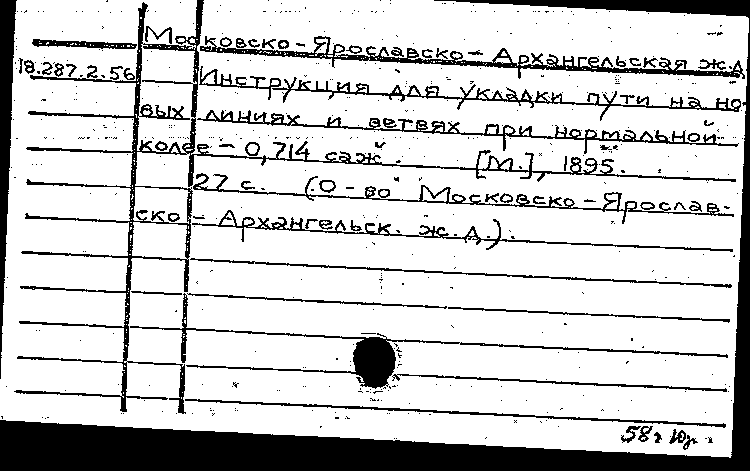 Московско-Ярославско-Архангельская ж.д.
18.287.2.56 Инструкция для укладки пути на но
вых линиях и ветвях при нормальной
колее - 0,714 саж. [М.], 1895.
27 с. (О-во Московско-Ярослав-
ско-Архангельск. ж.д.).
58г